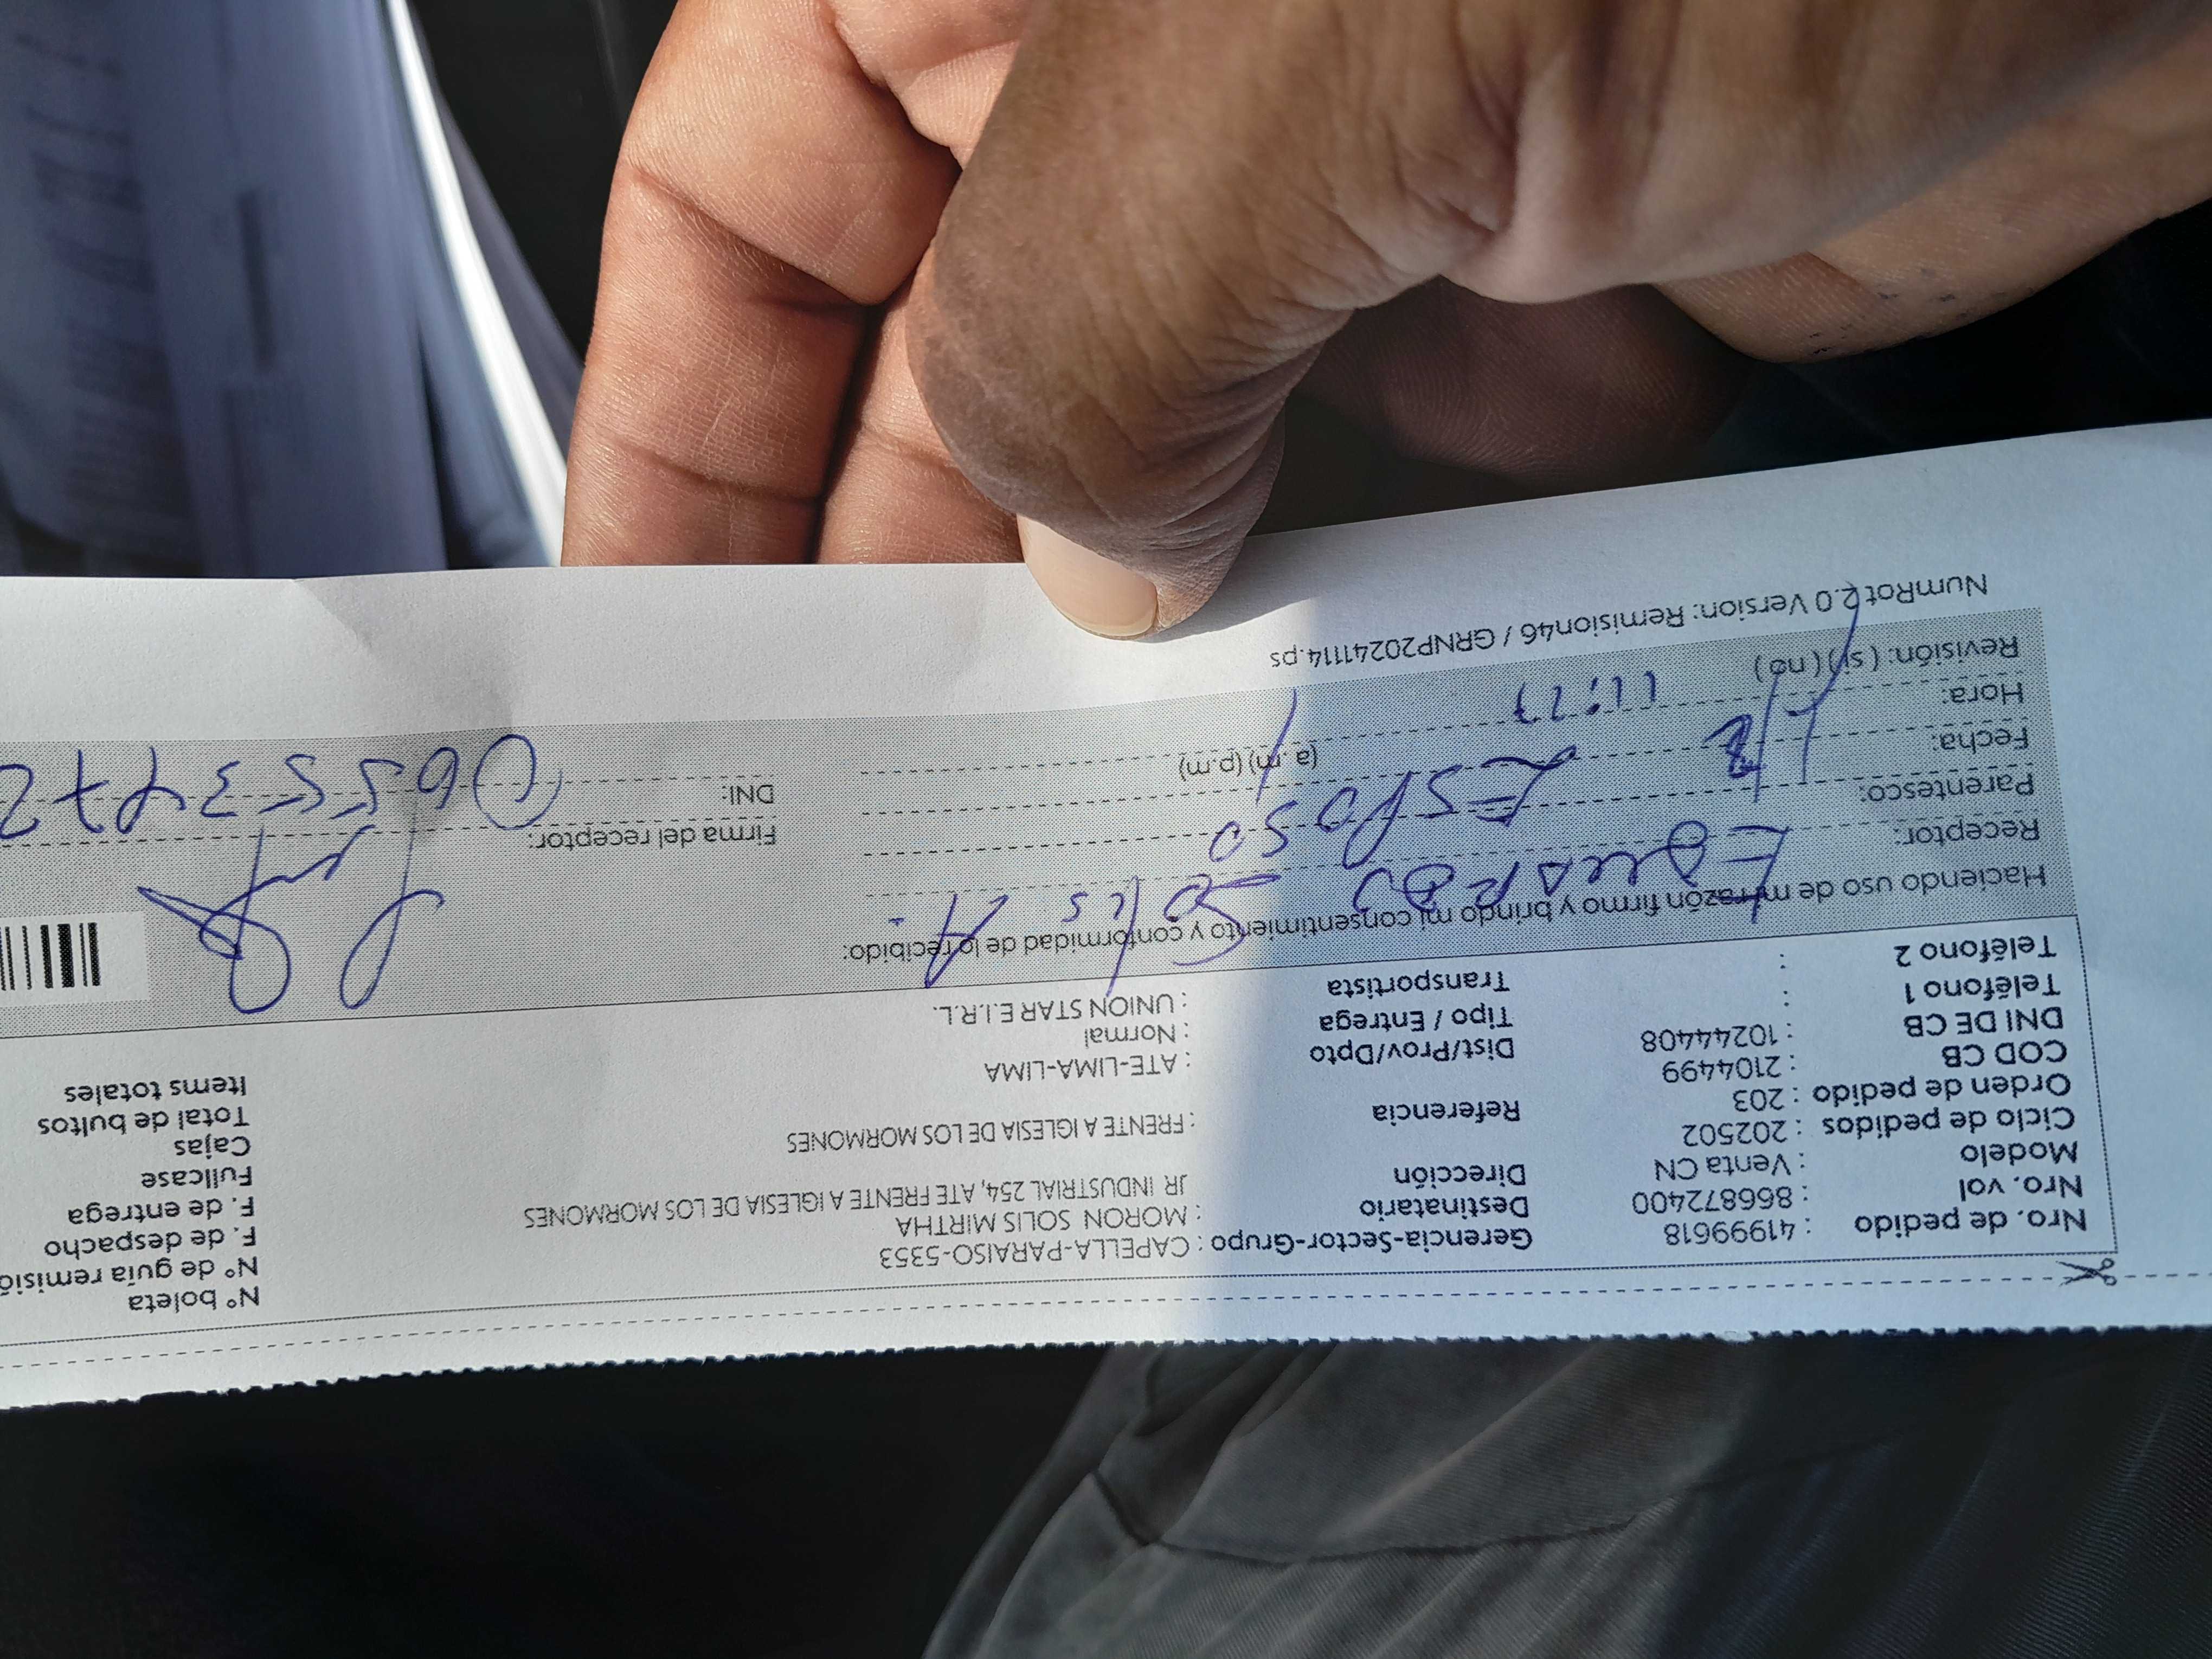 Nro. de pedido : 41999618 Gerencia-Sector-Grupo : CAPELLA-PARAISO-5353 N° boleta
Nro. vol : 866872400 Destinatario : MORON SOLIS MIRTHA N° de guía remisió
Modelo : Venta CN Dirección JR INDUSTRIAL 254, ATE FRENTE A IGLESIA DE LOS MORMONES F. de despacho
Ciclo de pedidos : 202502 F. de entrega
Orden de pedido : 203 Referencia : FRENTE A IGLESIA DE LOS MORMONES Fullcase
COD CB : 2104499 Cajas
DNI DE CB : 10244408 Dist/Prov/Dpto : ATE-LIMA-LIMA Total de bultos
Teléfono 1 : Tipo / Entrega : Normal Items totales
Teléfono 2 : Transportista : UNION STAR E.I.R.L.
Haciendo uso de mi razón firmo y brindo mi consentimiento y conformidad de lo recibido:
Receptor: Eduardo A. Firma del receptor:
Parentesco: Esposo DNI:
Fecha: (a.m) (p.m)
Hora: 11:27
Revisión: ( si ) ( no )
NumRot 2.0 Version: Remision46 / GRNP20241114.ps